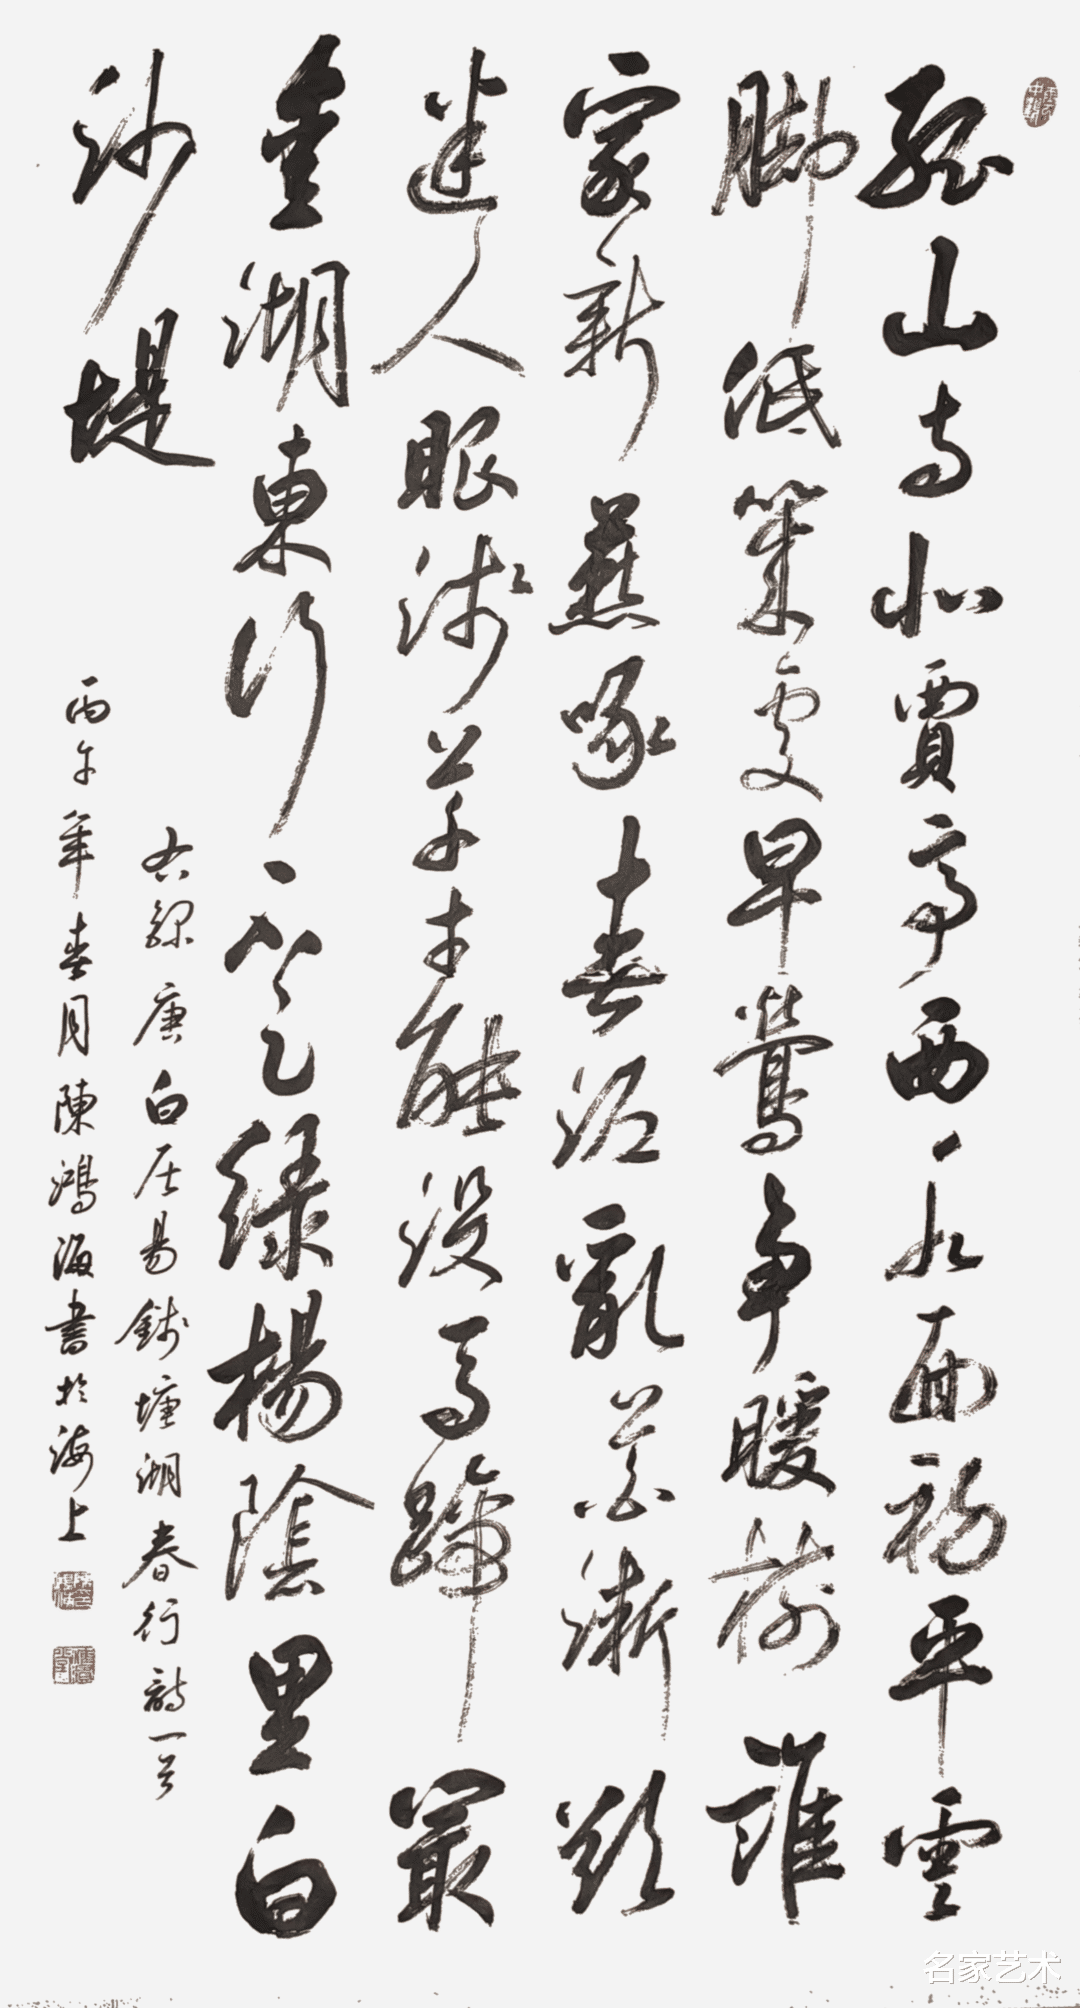 孤山寺北賈亭西水面初平雲
脚低幾處早鶯争暖樹誰
家新燕啄春泥亂花漸欲
迷人眼淺草才能没馬蹄最
愛湖東行不足綠楊陰里白
沙堤
右錄唐白居易錢塘湖春行詩一首
丙午年春月陳鴻海書於海上
名家艺术